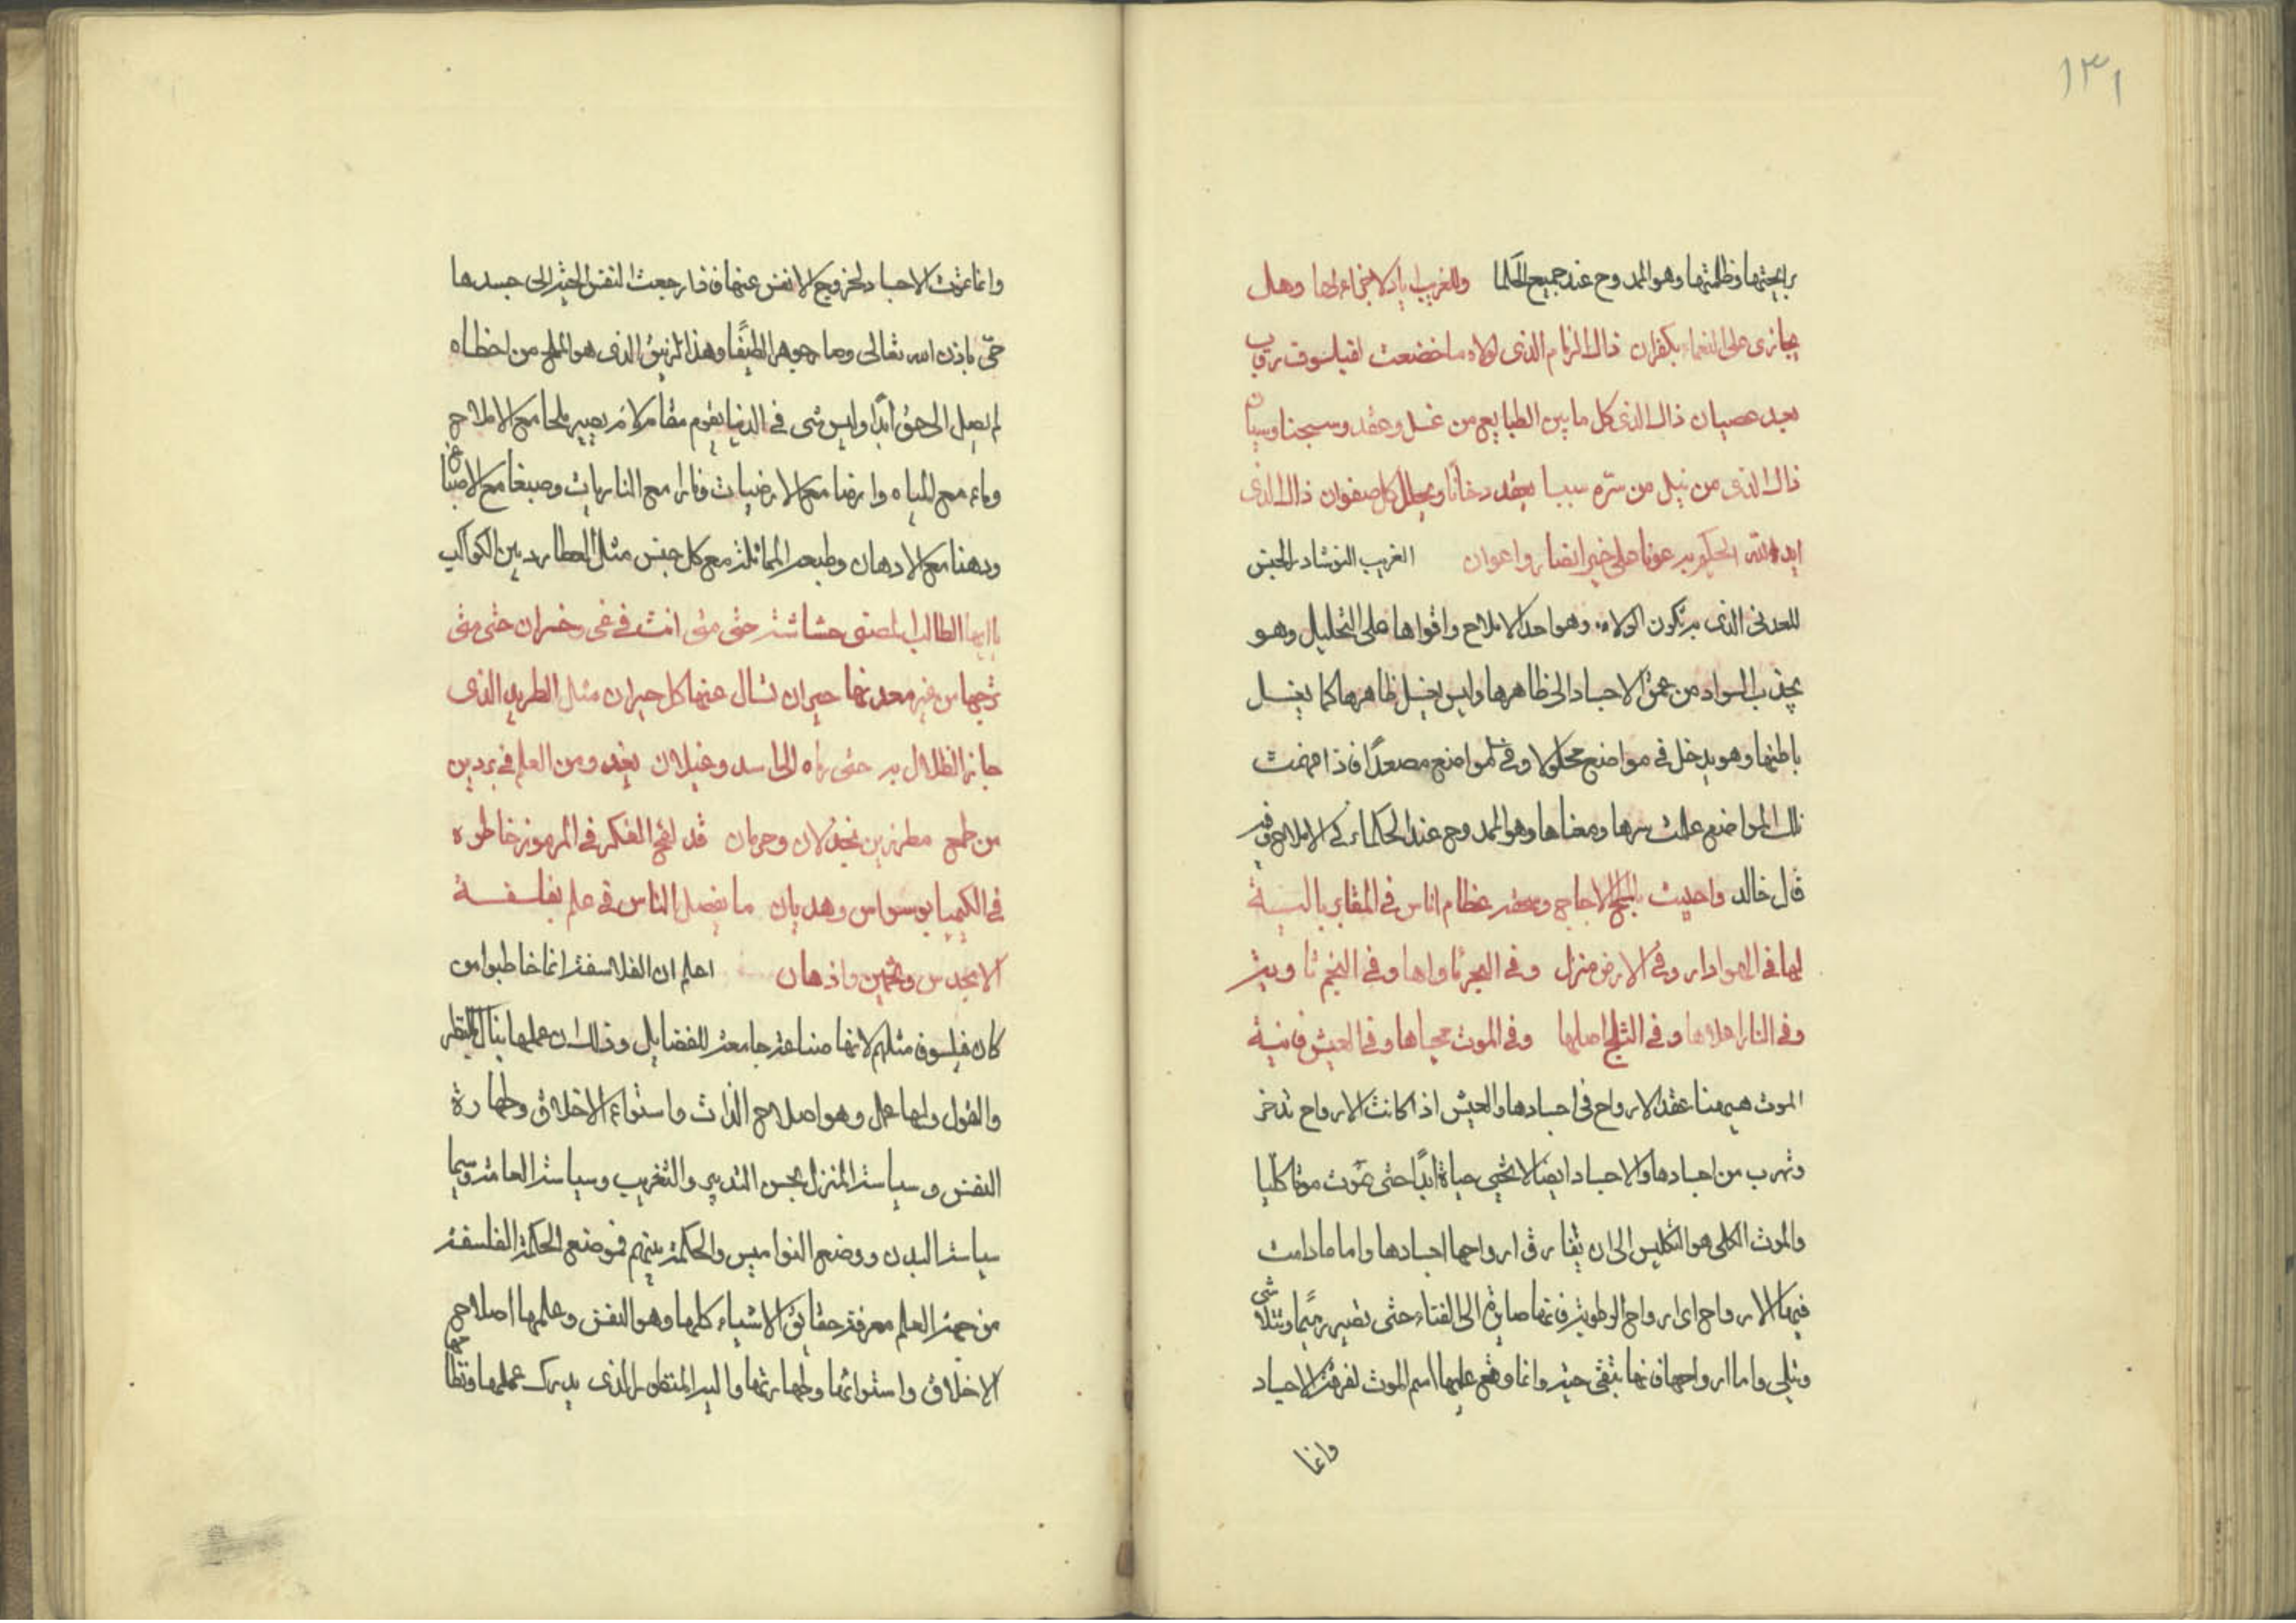 ١٣١
برايحتها وظلمتها وهو الممدوح عند جميع الحكما وللغريب اياد لا نجا
وهل
يجازى على النعماء بكفران ذاك الزمام الذى لولاه ما خضعت لفيلسوف رقاب
بعد عصيان ذاك الذى كل ما بين الطبايع من غسل وعقد وسبجنا وسيان
ذاك الذى من نيل من سره سببا يعقد دخانا ويحلل كل صفوان ذاك الذى
ايد الله الحكيم به عونا على خير انصار واعوان الغريب النوشادر الجنس
المعدنى الذى به تكون الولاه وهو احد الاملاح واقواها على التحليل وهو
يجذب السواد من عمق الاجساد الى ظاهرها وليس يغسل ظاهرها كما يغسل
باطنها وهو يدخل فى مواضع محلولا وفى مواضع مصعدًا فاذا فهمت
تلك المواضع علمت سرها ومعناها وهو الممدوح عند الحكماء فى الاملاح وفيه
قال خالد واحييت بالملح الاجاج وبعضه عظام اناس فى المقابر باليسة
لها فى الهوا دار وفى الارض منزل وفى البحر ماواها وفى النجم ثاوية
وفى النار اعلاها وفى الثلج اصلها وفى الموت محياها وفى العيش فانية
الموت هيهنا عقد الارواح فى اجسادها والعيش اذا كانت الارواح تدخر
وتهرب من اجسادها والاجساد ايضا لا تحيى حياة ابدًا حتى تموت موتا كليا
والموت الكلى هو التكليس الى ان يفارق ارواحها اجسادها واما ما دامت
فيها الارواح اى ارواح الرطوبة فانها صايرة الى الفناء حتى تصير رميمًا وتتلاشى
وتبلى واما ارواحها فانها تبقى حية وانما وقع عليها اسم الموت لفرقة الاجساد
وانما
وانما تموت الاجساد لخروج الانفس عنها فاذا رجعت النفس الحية الى جسدها
حيى باذن الله تعالى وصار جوهرا لطيفًا وهذا الزيبق الذى هو الملح من اخطاه
لم يصل الى حق ابدًا وليس شى فى الدنيا يقوم مقامه لانه يصير ملحا مع الاملاح
وماء مع المياه وارضا مع الارضيات ونارا مع الناريات وصبغا مع الاصباغ
ودهنا مع الادهان وطبعه المماثلة مع كل جنس مثل العطارد بين الكواكب
يا ايها الطالب المضنى حشاشته حتى متى انت فى غى وخسران حتى متى
ترجها من غير معدنها حيران تسال عنها كل حيران مثل الطريد الذى
جاز الظلال به حتى رماه الى اسد وغيلان يغدو من العلم فى بردين
من طمع مطرزين بخذلان وحرمان قد لقح الفكر فى المرموز خاطره
فى الكيميا بوسواس وهديان ما يفضل الناس فى علم بفلسفة
الا بحدس وتخمين واذهان اعلم ان الفلاسفة انما خاطبوا من
كان فيلسوف مثلهم لانها صناعة جامعة للفضايل وذلك ان عملها ينال بالنظر
والقول ولها عمل وهو اصلاح الذات واستواء الاخلاق وطهارة
النفس وسياسة المنزل بحسن التدبير والتغريب وسياسة العامة وسيما
سياسة البدن ووضع النواميس والحكمة بينهم فموضع الحكمة الفلسفة
من جهة العلم معرفة حقائق الاشياء كلها وهو النفس وعلمها اصلاح
الاخلاق واستوائها وطهارتها واليد المتطهر الذى يدرك عملها ونتاجها